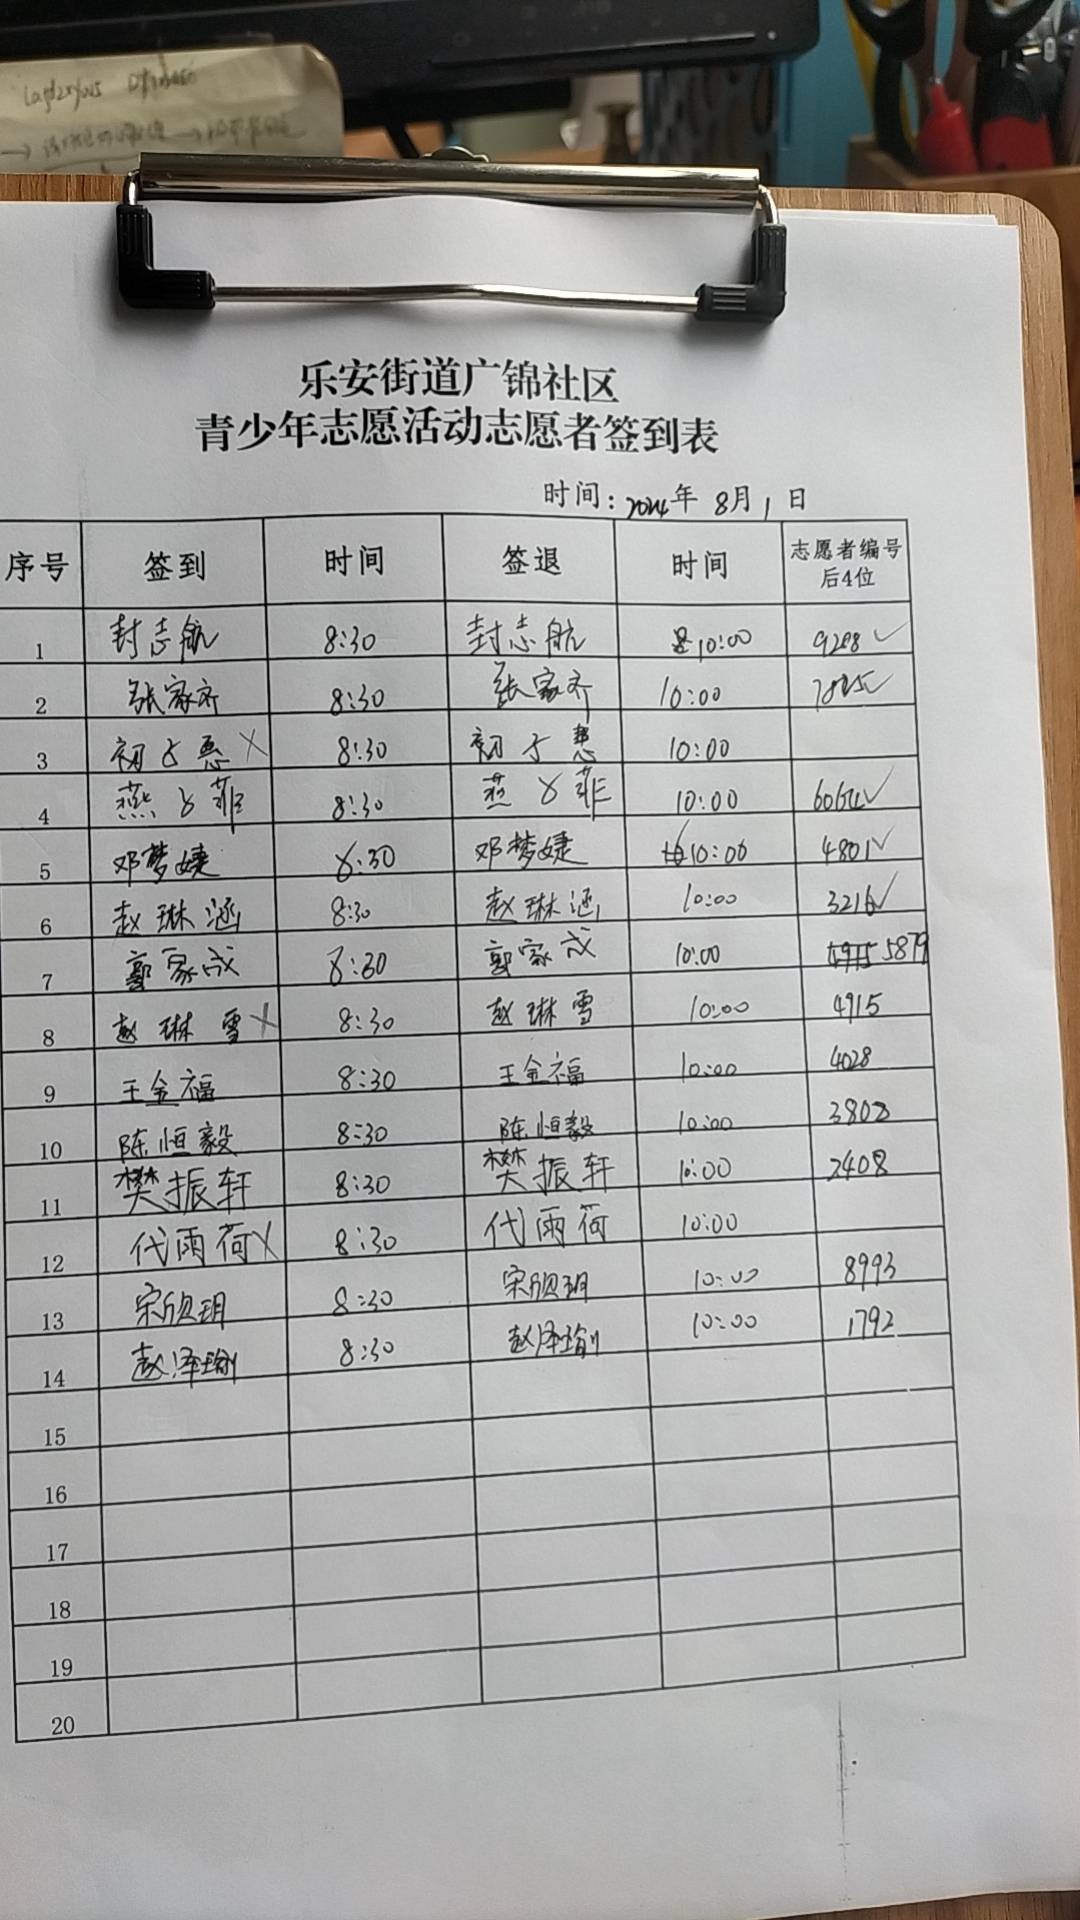 乐安街道广锦社区
青少年志愿活动志愿者签到表
时间: 2024年 8月 1 日
序号 签到 时间 签退 时间 志愿者编号后4位
1 封志航 8:30 封志航 10:00 9288 ✓
2 张家齐 8:30 张家齐 10:00
3 初子惠 X 8:30 初子惠 10:00
4 燕子菲 8:30 燕子菲 10:00 6064 ✓
5 邓梦婕 8:30 邓梦婕 10:00 4801 ✓
6 赵琳涵 8:30 赵琳涵 10:00 3216 ✓
7 郭家成 8:30 郭家成 10:00 5879
8 赵琳雪 X 8:30 赵琳雪 10:00 4915
9 王金福 8:30 王金福 10:00 4028
10 陈恒毅 8:30 陈恒毅 10:00 3808
11 樊振轩 8:30 樊振轩 10:00 2408
12 代雨荷 X 8:30 代雨荷 10:00
13 宋欣玥 8:30 宋欣玥 10:00 8993
14 赵泽瑜 8:30 赵泽瑜 10:00 1792
15
16
17
18
19
20